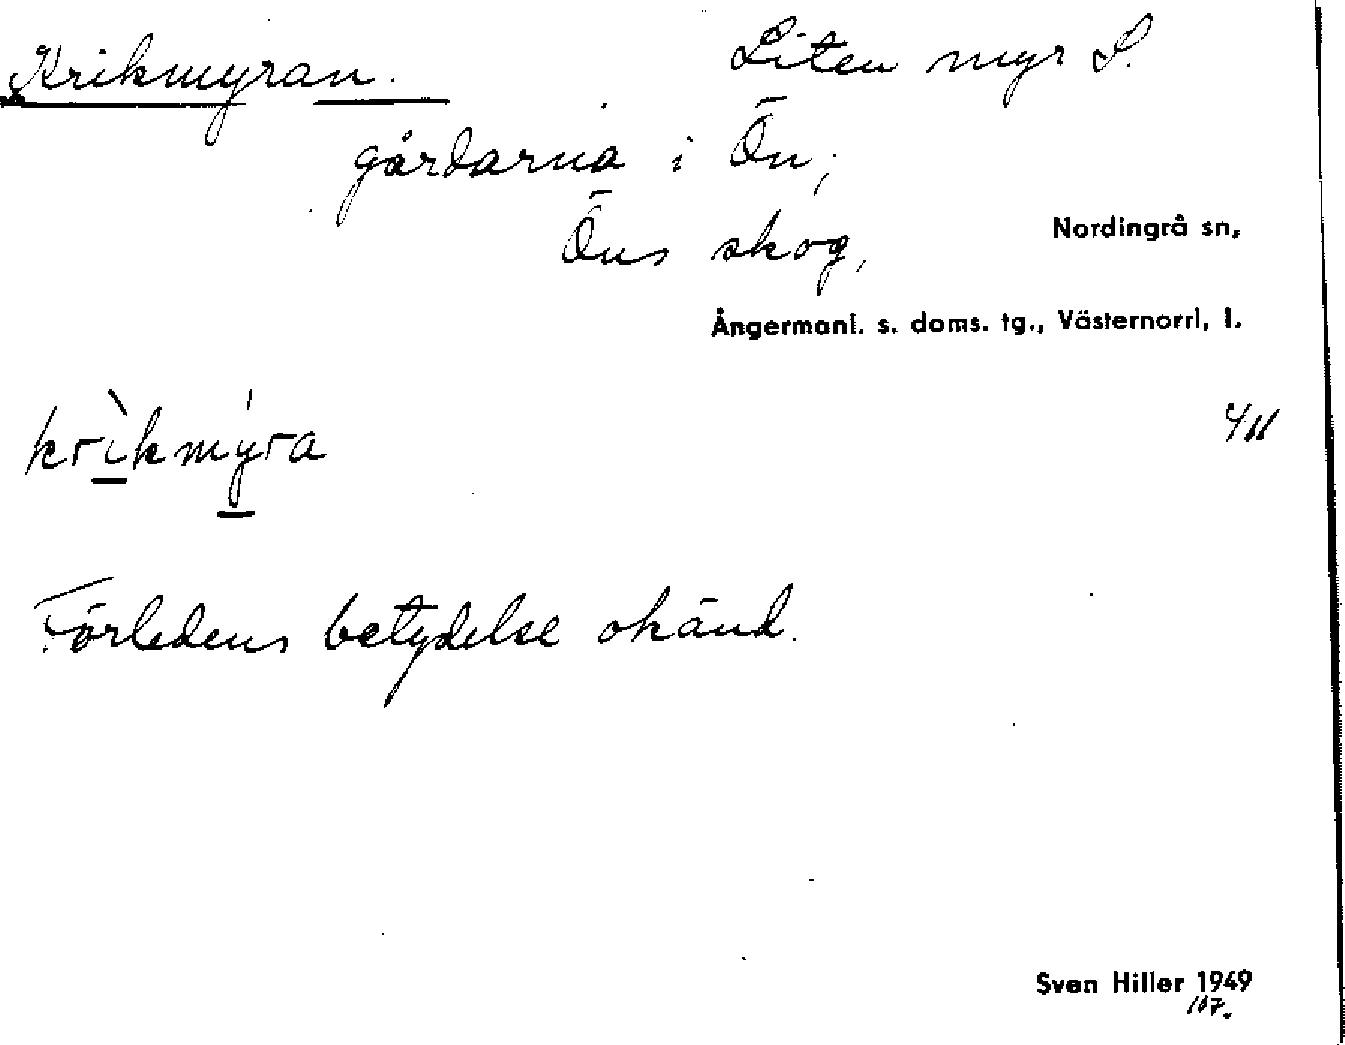 Krikmyran. Liten myr S.
gårdarna i Ön,
Öns skog,
Nordingrå sn,
Ångermanl. s. doms. tg., Västernorrl, l.
krìkmýra
Förledens betydelse okänd.
Sven Hiller 1949
107.